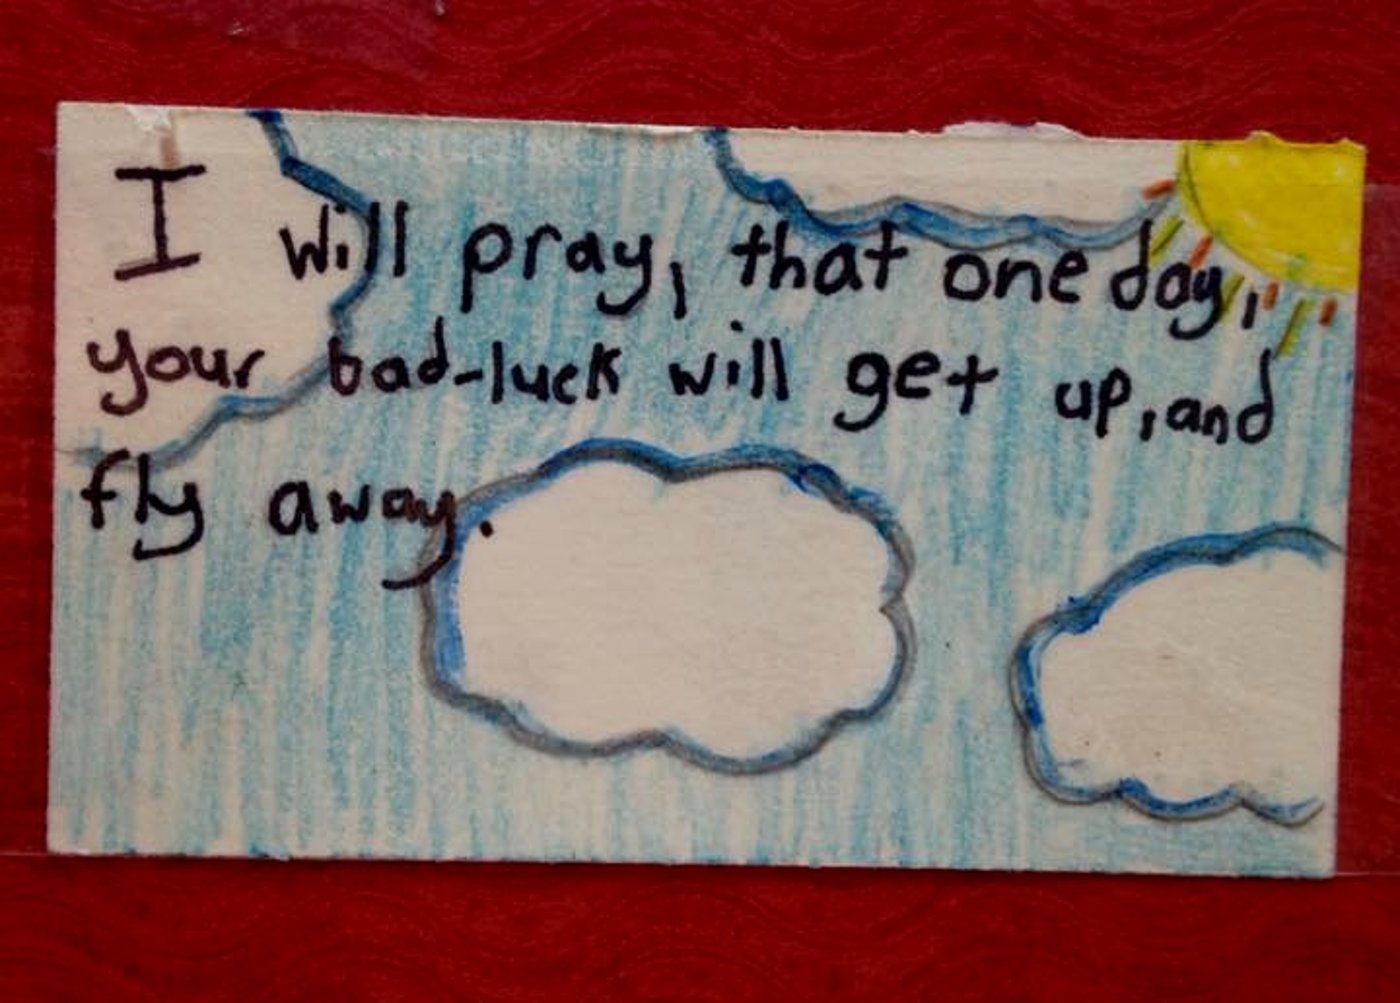 I will pray, that one day,
your bad-luck will get up, and
fly away.